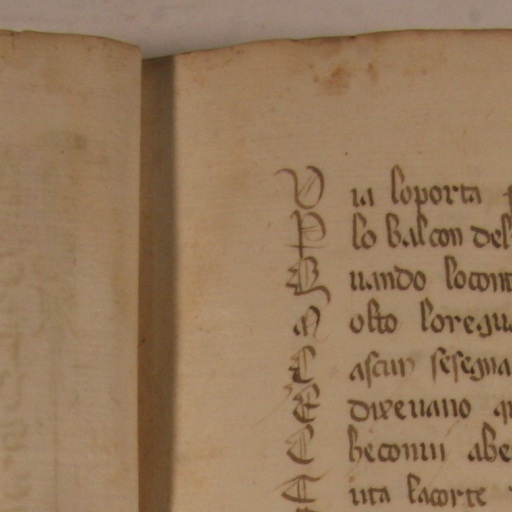 V ia loporta
P lo balcon del
Q uando locont
M olto loregua
C ascun sesegna
E dixeuano
C hecomu abe
T uta lacorte